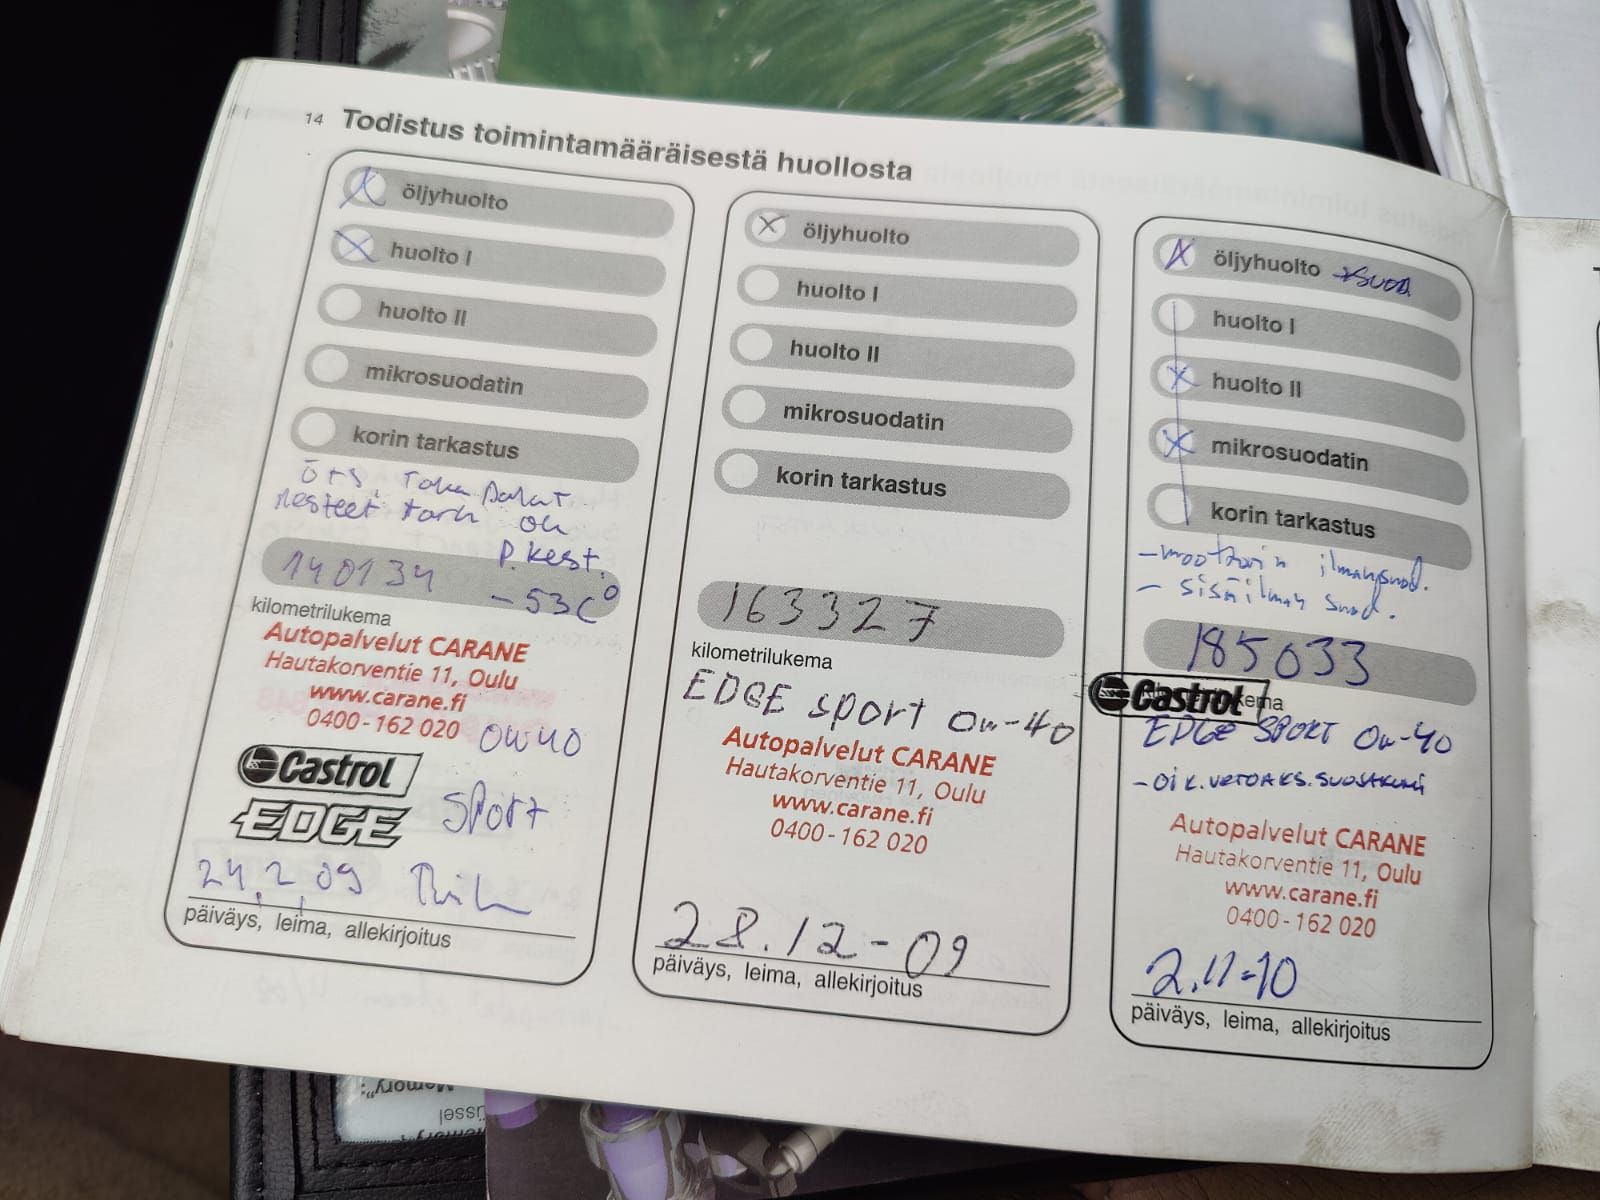 14 Todistus toimintamääräisestä huollosta
öljyhuolto
huolto I
huolto II
mikrosuodatin
korin tarkastus
öTS, Taka palat
nesteet tark ok
P. kest.
140134 -53C°
kilometrilukema
Autopalvelut CARANE
Hautakorventie 11, Oulu
www.carane.fi
0400-162 020 0W40
Castrol
EDGE Sport
24.2.09
päiväys, leima, allekirjoitus
öljyhuolto
huolto I
huolto II
mikrosuodatin
korin tarkastus
163327
kilometrilukema
EDGE sport 0w-40
Autopalvelut CARANE
Hautakorventie 11, Oulu
www.carane.fi
0400-162 020
28.12-09
päiväys, leima, allekirjoitus
öljyhuolto +suod
huolto I
huolto II
mikrosuodatin
korin tarkastus
-moottorin ilmansuod.
- sisäilman suod.
185033
Castrol
EDGE SPORT 0w-40
-OIK.VETOAKS.SUOJAKUMI
Autopalvelut CARANE
Hautakorventie 11, Oulu
www.carane.fi
0400-162 020
2.11-10
päiväys, leima, allekirjoitus